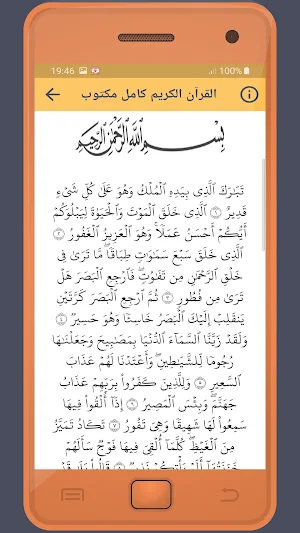 19:46
100%
القرآن الكريم كامل مكتوب
بِسْمِ اللَّهِ الرَّحْمَٰنِ الرَّحِيمِ
تَبَٰرَكَ ٱلَّذِى بِيَدِهِ ٱلْمُلْكُ وَهُوَ عَلَىٰ كُلِّ شَىْءٍ
قَدِيرٌ ١ ٱلَّذِى خَلَقَ ٱلْمَوْتَ وَٱلْحَيَوٰةَ لِيَبْلُوَكُمْ
أَيُّكُمْ أَحْسَنُ عَمَلًا وَهُوَ ٱلْعَزِيزُ ٱلْغَفُورُ ٢
ٱلَّذِى خَلَقَ سَبْعَ سَمَٰوَٰتٍ طِبَاقًا مَّا تَرَىٰ فِى
خَلْقِ ٱلرَّحْمَٰنِ مِن تَفَٰوُتٍ فَٱرْجِعِ ٱلْبَصَرَ هَلْ
تَرَىٰ مِن فُطُورٍ ٣ ثُمَّ ٱرْجِعِ ٱلْبَصَرَ كَرَّتَيْنِ
يَنقَلِبْ إِلَيْكَ ٱلْبَصَرُ خَاسِئًا وَهُوَ حَسِيرٌ ٤
وَلَقَدْ زَيَّنَّا ٱلسَّمَآءَ ٱلدُّنْيَا بِمَصَٰبِيحَ وَجَعَلْنَٰهَا
رُجُومًا لِّلشَّيَٰطِينِ وَأَعْتَدْنَا لَهُمْ عَذَابَ
ٱلسَّعِيرِ ٥ وَلِلَّذِينَ كَفَرُوا۟ بِرَبِّهِمْ عَذَابُ
جَهَنَّمَ وَبِئْسَ ٱلْمَصِيرُ ٦ إِذَآ أُلْقُوا۟ فِيهَا
سَمِعُوا۟ لَهَا شَهِيقًا وَهِىَ تَفُورُ ٧ تَكَادُ تَمَيَّزُ
مِنَ ٱلْغَيْظِ كُلَّمَآ أُلْقِىَ فِيهَا فَوْجٌ سَأَلَهُمْ
خَزَنَتُهَآ أَلَمْ يَأْتِكُمْ نَذِيرٌ ٨ قَالُوا۟ بَلَىٰ قَدْ